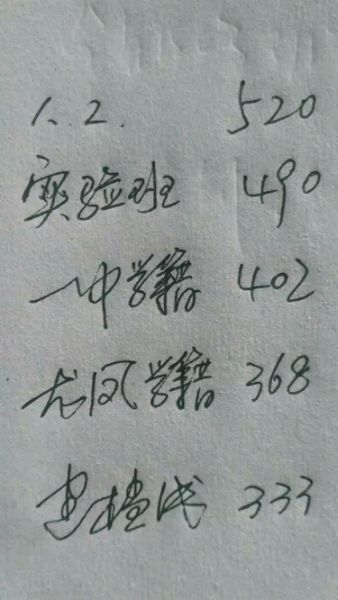 1. 2. 520
实验班 490
一中学籍 402
龙凤学籍 368
建档线 333